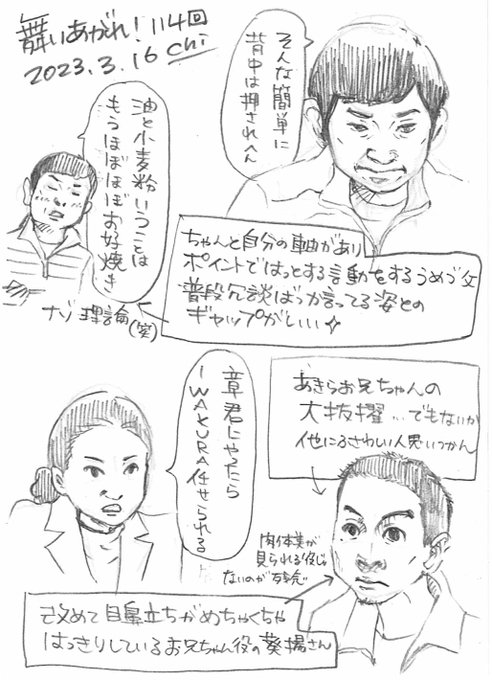 舞いあがれ！114回
2023.3.16 chi
そんな簡単に
背中は押されへん
油と小麦粉いうことは
もうほぼほぼお好焼き
ナゾ理論(笑)
ちゃんと自分の軸があり
ポイントではっとする言動をするうめづ父
普段冗談ばっか言ってる姿との
ギャップがいい
章君にやったら
IWAKURA任せられる
あきらお兄ちゃんの
大抜擢…でもないか
他にふさわしい人思いつかん
肉体美が
見られる役じゃ
ないのが残念
改めて目鼻立ちがめちゃくちゃ
はっきりしているお兄ちゃん役の葵揚さん